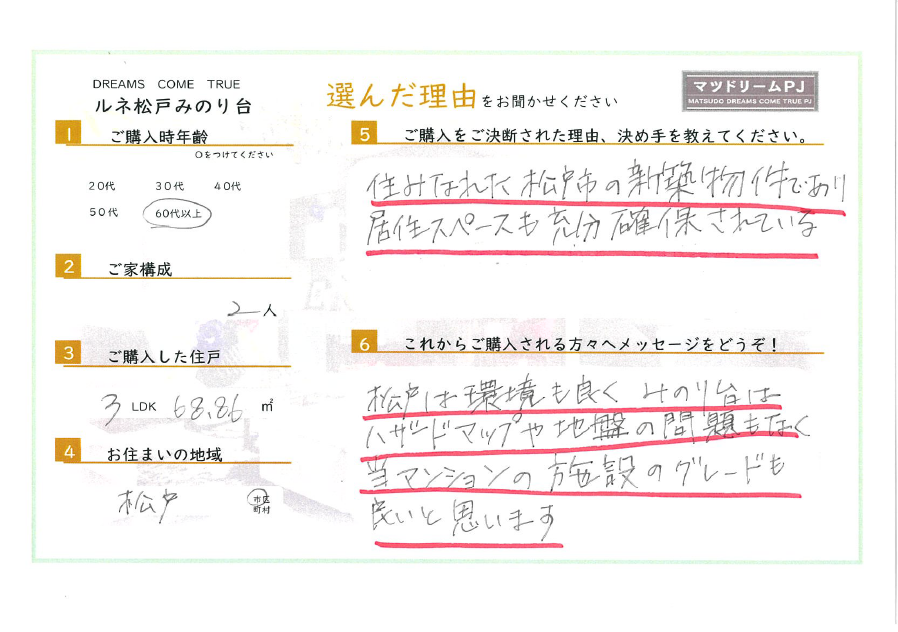 DREAMS COME TRUE
ルネ松戸みのり台
選んだ理由をお聞かせください
マツドリームPJ
MATSUDO DREAMS COME TRUE PJ
1 ご購入時年齢
○をつけてください
20代 30代 40代
50代 60代以上
2 ご家構成
2人
3 ご購入した住戸
3 LDK 68.86 ㎡
4 お住まいの地域
松戸 市区
町村
5 ご購入をご決断された理由、決め手を教えてください。
住みなれた松戸市の新築物件であり
居住スペースも充分確保されている
6 これからご購入される方々へメッセージをどうぞ！
松戸は環境も良く みのり台は
ハザードマップや地盤の問題もなく
当マンションの施設のグレードも
良いと思います